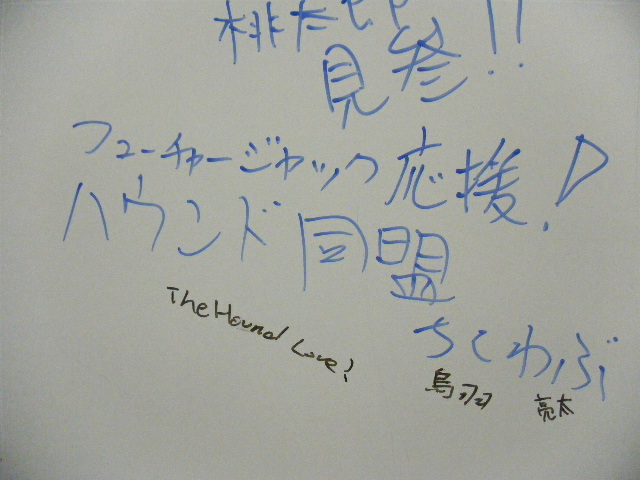 桃太郎!!
見参
フューチャージャック応援!
ハウンド同盟
The Hound Love!
ちくわぶ
鳥羽 亮太